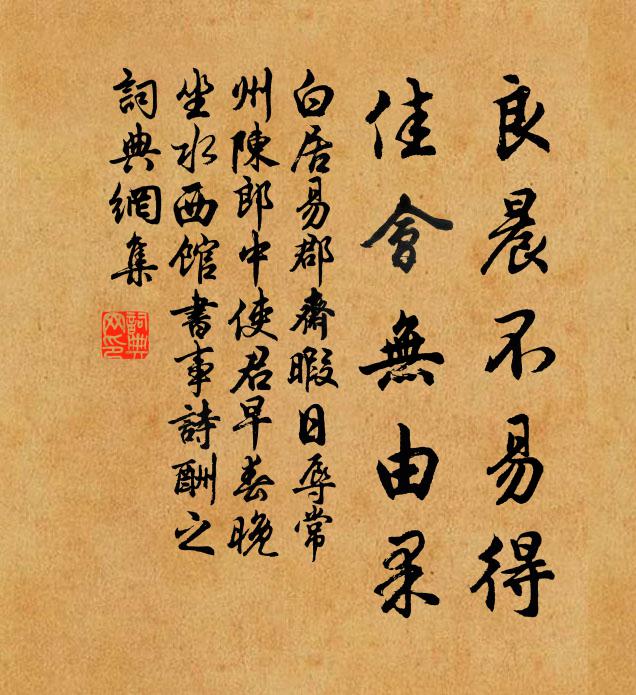 良晨不易得
佳會無由果
白居易郡齋暇日辱常
州陳郎中使君早春晚
坐水西館書事詩酬之
詞典網集
詞典
网印